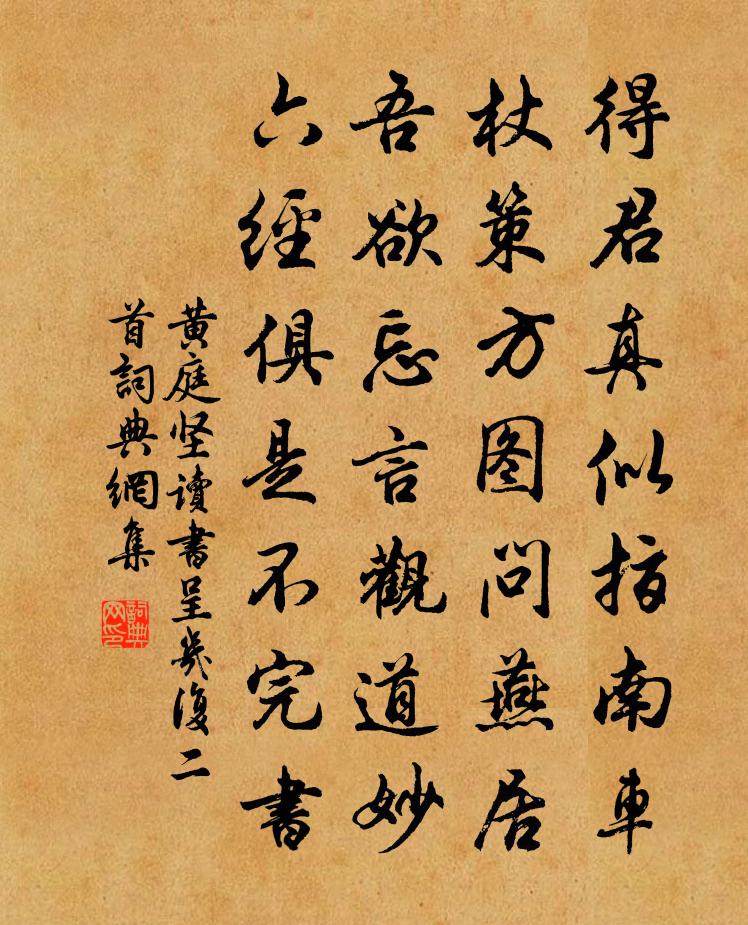 得君真似指南車
杖策方图問燕居
吾欲忘言觀道妙
六經俱是不完書
黄庭坚讀書呈幾復二
首詞典網集
詞典
网印